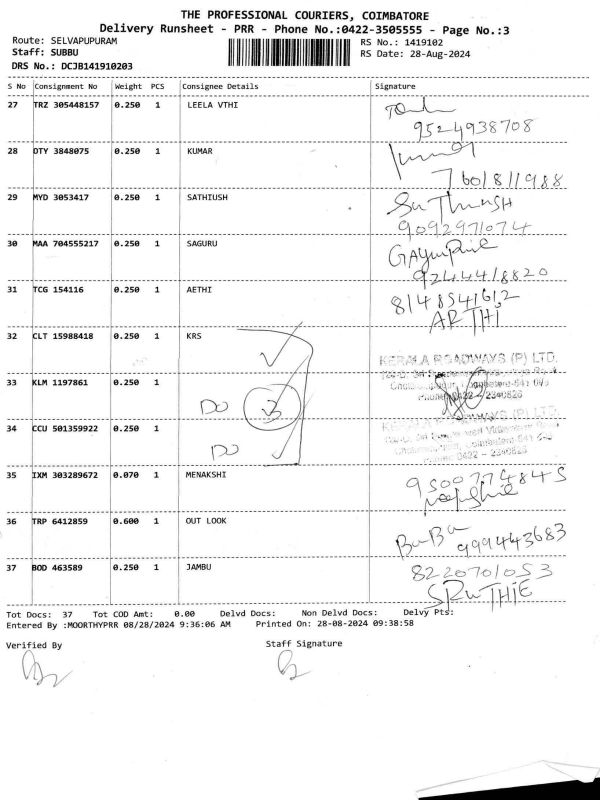 THE PROFESSIONAL COURIERS, COIMBATORE
Delivery Runsheet - PRR - Phone No.:0422-3505555 - Page No.:3
Route: SELVAPUPURAM RS No.: 1419102
Staff: SUBBU RS Date: 28-Aug-2024
DRS No.: DCJB141910203
S No Consignment No Weight PCS Consignee Details Signature
27 TRZ 305448157 0.250 1 LEELA VTHI
9524938708
28 DTY 3848075 0.250 1 KUMAR
7601811988
29 MYD 3053417 0.250 1 SATHIUSH SaThiush
9092971074
30 MAA 704555217 0.250 1 SAGURU
9244418820
31 TCG 154116 0.250 1 AETHI 8148541612
ARTHI
32 CLT 15988418 0.250 1 KRS
KERALA ROADWAYS (P) LTD.
33 KLM 1197861 0.250 1
DO 3
Phone: 0422 - 2340826
34 CCU 501359922 0.250 1
KERALA ROADWAYS (P) LTD.
DO
Phone: 0422 - 2340826
35 IXM 303289672 0.070 1 MENAKSHI 9500774845
36 TRP 6412859 0.600 1 OUT LOOK
BaBu 999443683
37 BOD 463589 0.250 1 JAMBU 8220701053
SRuTHIE
Tot Docs: 37 Tot COD Amt: 0.00 Delvd Docs: Non Delvd Docs: Delvy Pts:
Entered By :MOORTHYPRR 08/28/2024 9:36:06 AM Printed On: 28-08-2024 09:38:58
Verified By Staff Signature